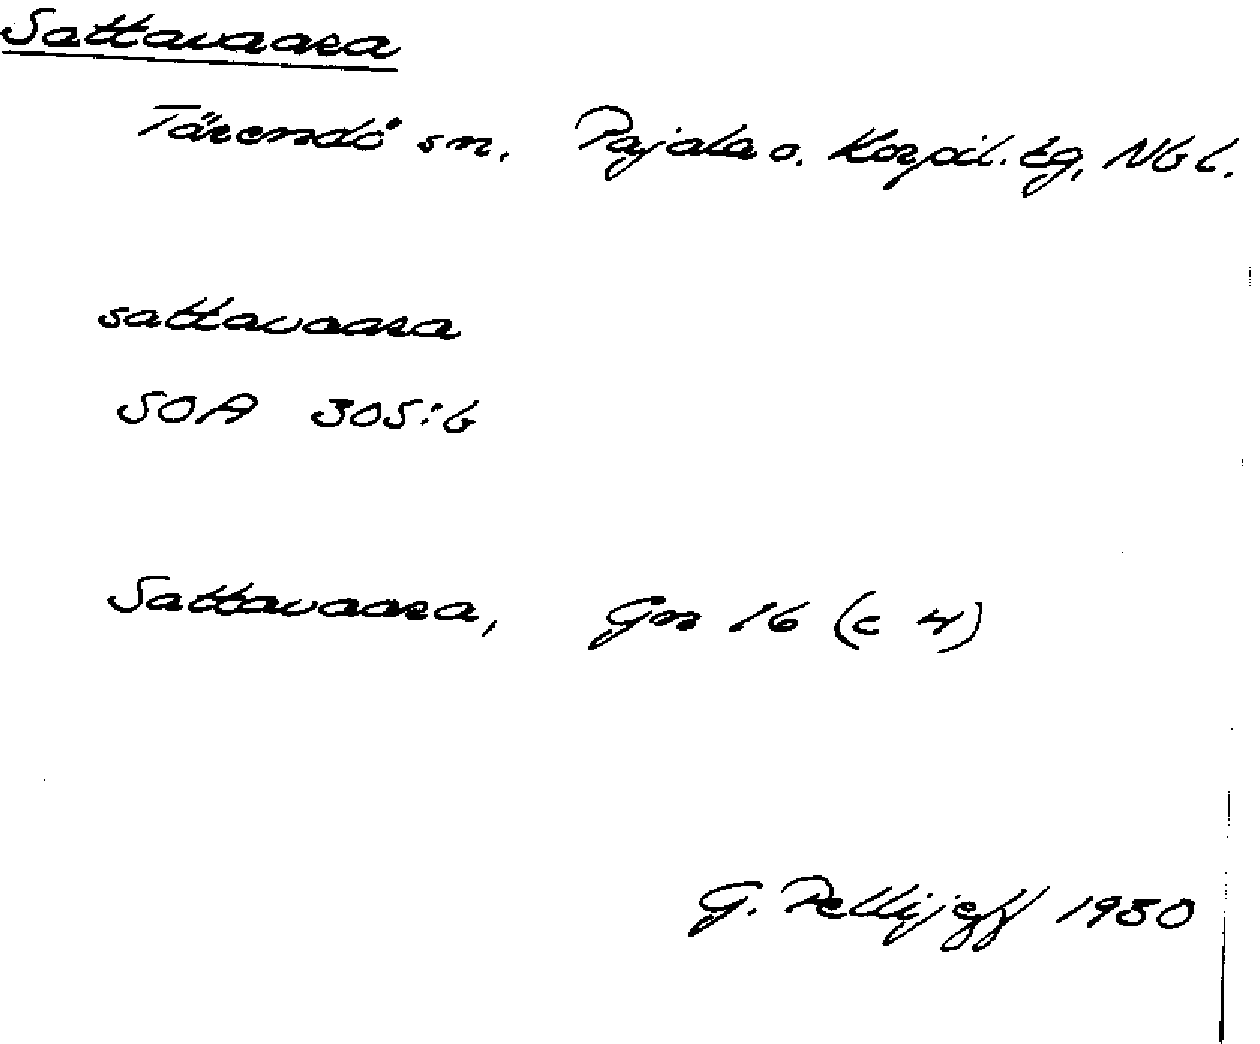 Sattavaara
Tärendö sn. Pajala o. Korpil. tg, Nb l.
sattavaara
SOA 305:6
Sattavaara, Gn 16 (c 4)
G. Pellijeff 1980